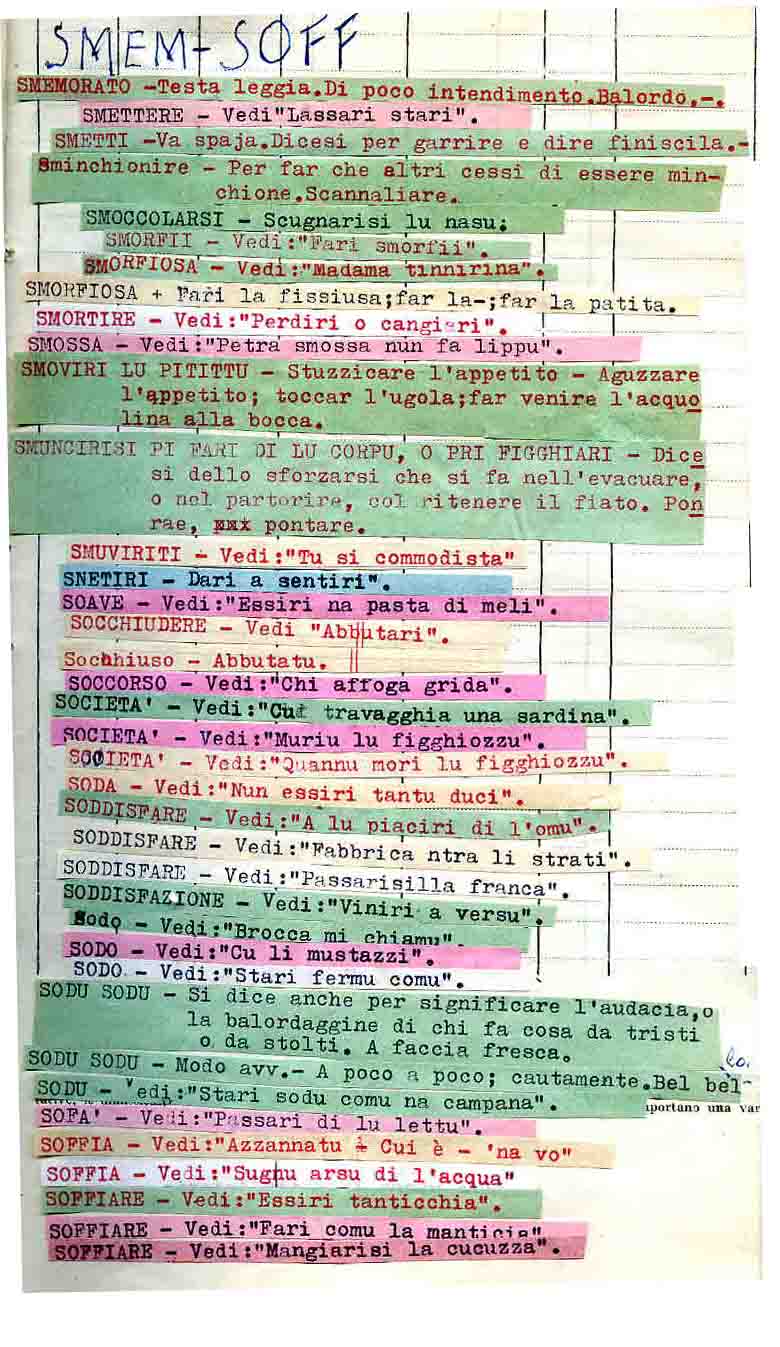 SMEM-SOFF
SMEMORATO -Testa leggia.Di poco intendimento.Balordo.-.
SMETTERE - Vedi"Lassari stari".
SMETTI -Va spaja.Dicesi per garrire e dire finiscila.-
Sminchionire - Per far che altri cessi di essere min-
chione.Scannaliare.
SMOCCOLARSI - Scugnarisi lu nasu;
SMORFII - Vedi:"Fari smorfii".
SMORFIOSA - Vedi:"Madama tinnirina".
SMORFIOSA + Fari la fissiusa;far la-;far la patita.
SMORTIRE - Vedi:"Perdiri o cangiari".
SMOSSA - Vedi:"Petra smossa nun fa lippu".
SMOVIRI LU PITITTU - Stuzzicare l'appetito - Aguzzare
l'appetito; toccar l'ugola;far venire l'acquo
lina alla bocca.
SMUNCIRISI PI FARI DI LU CORPU, O PRI FIGGHIARI - Dice
si dello sforzarsi che si fa nell'evacuare,
o nel partorire, col ritenere il fiato. Pon
rae, pontare.
SMUVIRITI - Vedi:"Tu si commodista"
SNETIRI - Dari a sentiri".
SOAVE - Vedi:"Essiri na pasta di meli".
SOCCHIUDERE - Vedi "Abbutari".
Socchiuso - Abbutatu.
SOCCORSO - Vedi:"Chi affoga grida".
SOCIETA' - Vedi:"Cu travagghia una sardina".
SOCIETA' - Vedi:"Muriu lu figghiozzu".
SOCIETA' - Vedi:"Quannu mori lu figghiozzu".
SODA - Vedi:"Nun essiri tantu duci".
SODDISFARE - Vedi:"A lu piaciri di l'omu".
SODDISFARE - Vedi:"Fabbrica ntra li strati".
SODDISFARE - Vedi:"Passarisilla franca".
SODDISFAZIONE - Vedi:"Viniri a versu".
Sodo - Vedi:"Brocca mi chiamu".
SODO - Vedi:"Cu li mustazzi".
SODO - Vedi:"Stari fermu comu".
SODU SODU - Si dice anche per significare l'audacia,o
la balordaggine di chi fa cosa da tristi
o da stolti. A faccia fresca.
SODU SODU - Modo avv.- A poco a poco; cautamente.Bel bel-
lo.
SODU - Vedi:"Stari sodu comu na campana".
portano una var
SOFA' - Vedi:"Passari di lu lettu".
SOFFIA - Vedi:"Azzannatu - Cui è - 'na vo"
SOFFIA - Vedi:"Sugnu arsu di l'acqua"
SOFFIARE - Vedi:"Essiri tanticchia".
SOFFIARE - Vedi:"Fari comu la manticia"
SOFFIARE - Vedi:"Mangiarisi la cucuzza".